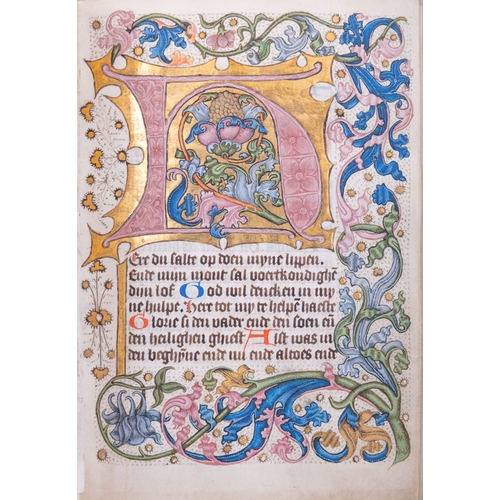 HEre du salte op doen myne lippen.
Ende mijn mont sal voertkondighē
dijn lof God wil dencken in my
ne hulpe. Here tot my te helpē haeste
Glorie si den vader ende den soen eñ
den heilighen gheest Aist was in
den beghȳne ende nu ende altoes ende